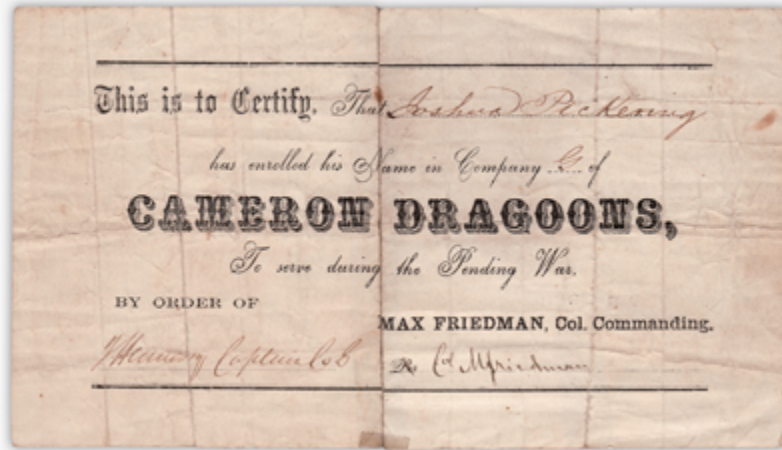 This is to Certify, That Joshua Pickering
has enrolled his Name in Company G of
CAMERON DRAGOONS,
To serve during the Pending War.
BY ORDER OF
MAX FRIEDMAN, Col. Commanding.
Captain Co
Col MFriedman